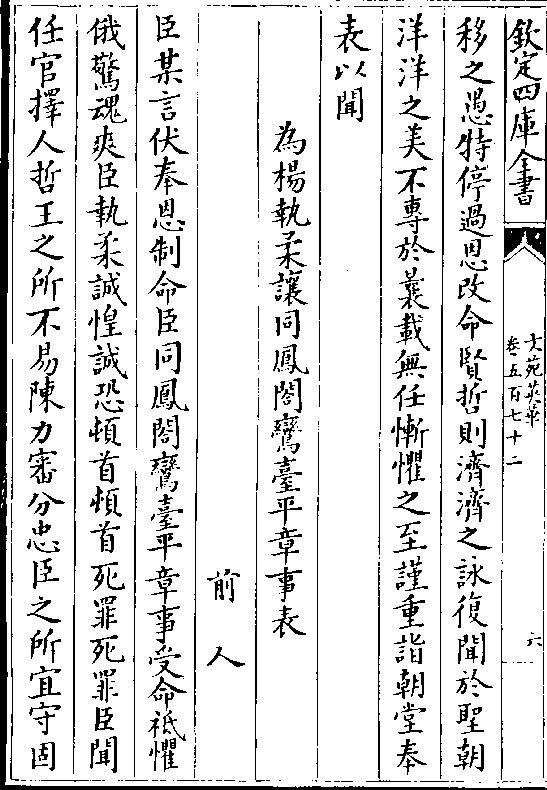 欽定四庫全書
文苑英華
卷五百七十二
六
移之愚特停過恩改命賢哲則濟濟之詠復聞於聖朝
洋洋之美不專於曩載無任慚懼之至謹重詣朝堂奉
表以聞
為楊執柔讓同鳳閣鸞臺平章事表
前人
臣某言伏奉恩制命臣同鳳閣鸞臺平章事受命祗懼
俄驚魂爽臣執柔誠惶誠恐頓首頓首死罪死罪臣聞
任官擇人哲王之所不易陳力審分忠臣之所宜守固